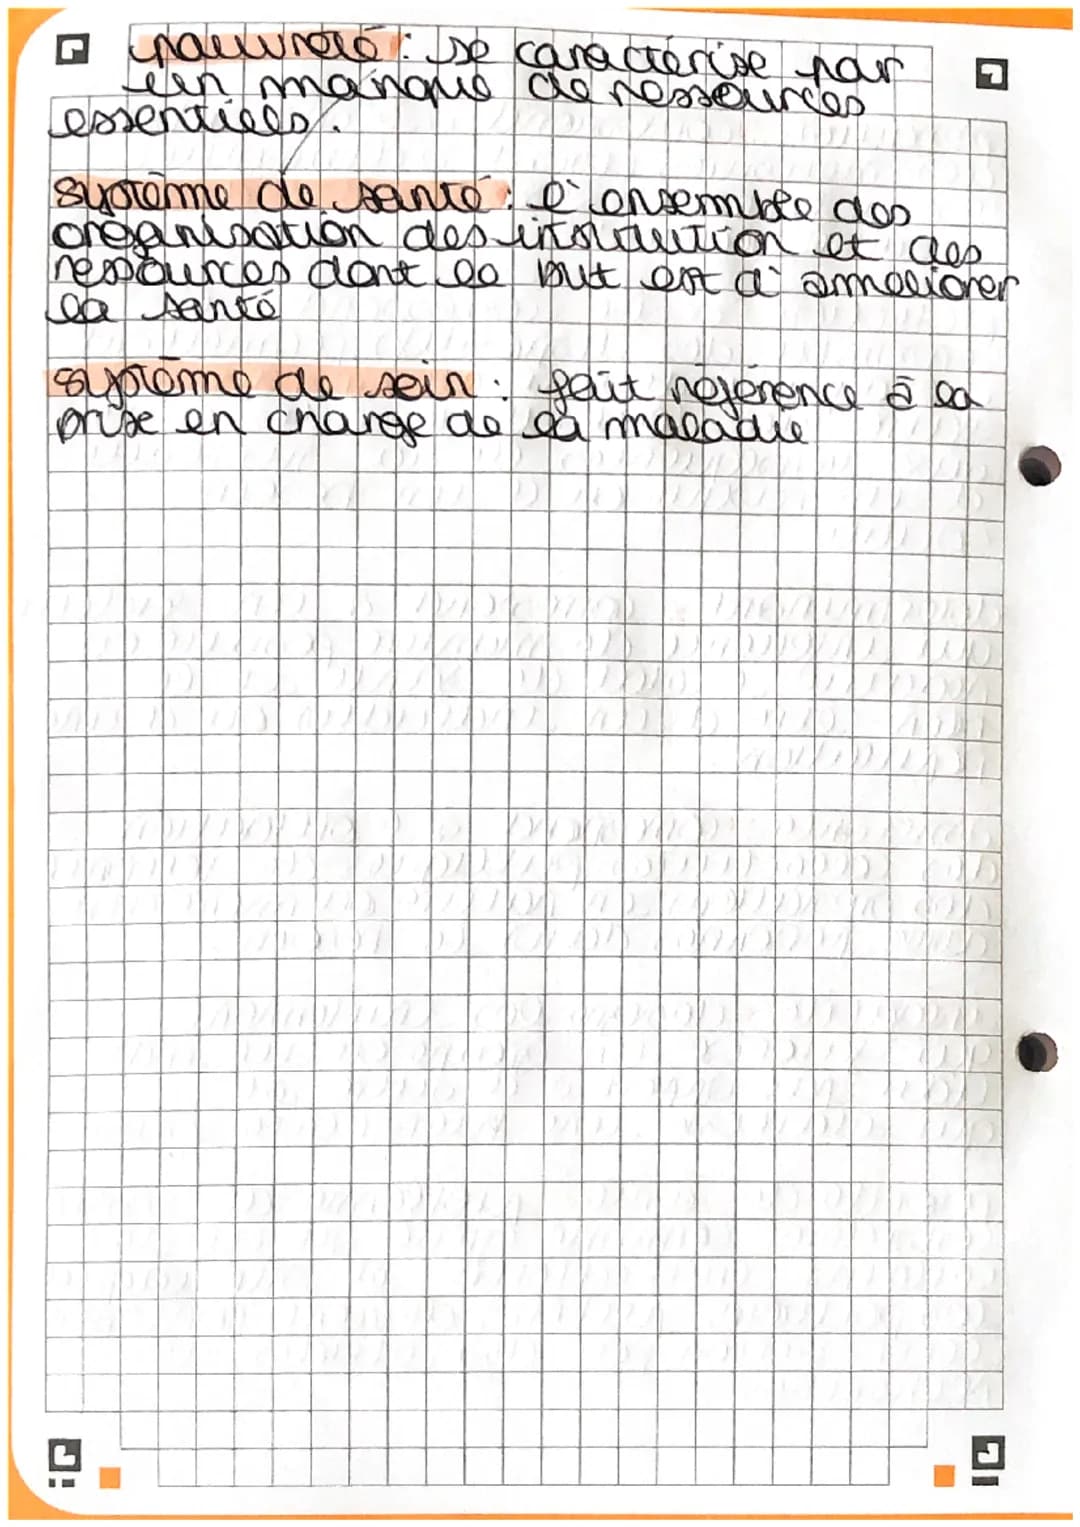 pauvreté : se caractérise par
un manque de ressources
essentiels.
système de santé : l'ensemble des
organisation des institution et des
ressources dont le but est d'ameliorer
la santé
système de sein : fait référence à la
prise en charge de la maladie